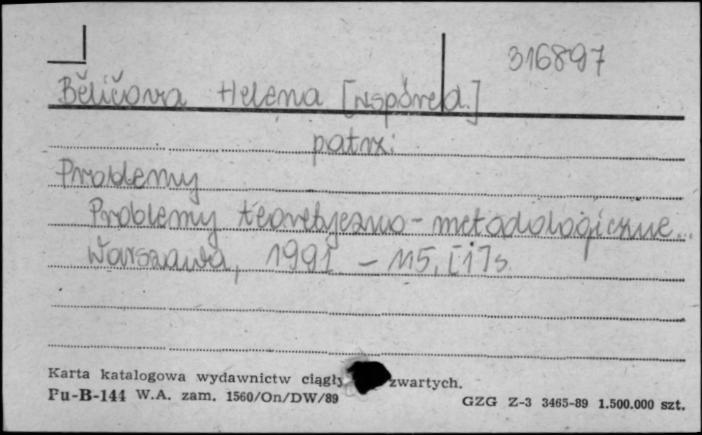 316897
Běličova Helena [współred.]
patrz:
Problemy
Problemy teoretyczno-metodologiczne...
Warszawa, 1991 - 115, [1] s.
Karta katalogowa wydawnictw ciągły zwartych.
Pu-B-144 W.A. zam. 1560/On/DW/89 GZG Z-3 3465-89 1.500.000 szt.